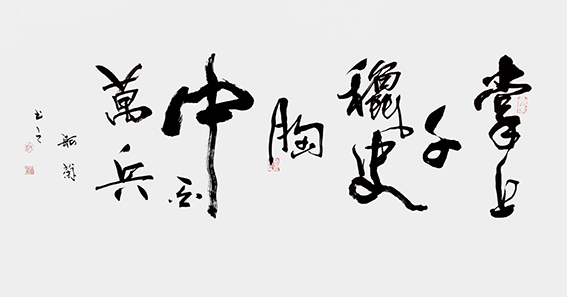 掌上
千
穐史
胸
中
百
萬兵